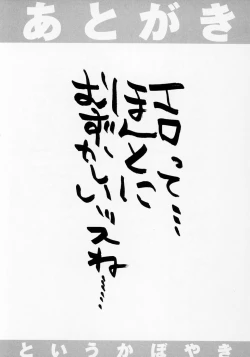 あとがき
エロって……
ほんとに
むずかしいッスね……
というかぼやき